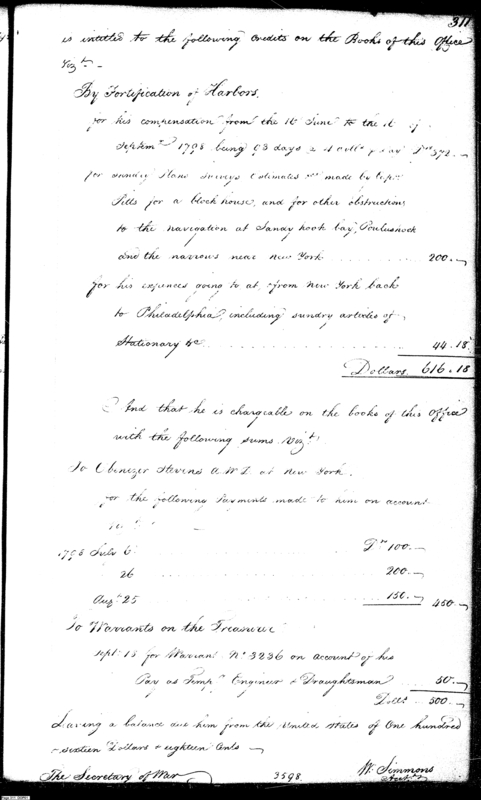 311
is intitled to the following credits on the Books of this Office
Vizt.
By Fortification of Harbors,
for his compensation from the 1t. June to the 1t. of
Septemr. 1798 being 93 days a 4 Dolls. p day Drs. 372.
for sundry Plans Surveys Estimates &c made by
for a block house, and for other obstructions
to the navigation at Sandy hook bay,
and the narrows near New York . . . . 200.
for his expences going to at & from New York back
to Philadelphia, including sundry articles of
Stationary &c . . . . 44.18
Dollars 616.18
And that he is chargeable on the books of this Office
with the following sums Vizt.
To Ebenezer Stevens A W D at New York.
for the following payments made to him on account
1798 July 6 . . . . Drs. 100.
26 . . . . 200.
Augt. 25 . . . . 150. 450
To Warrants on the Treasurer
Sept. 15 for Warrant No. 3236 on account of his
Pay as Tempy. Engineer & Draughtsman . . . . 50.
Dolls. 500.
Leaving a balance due him from the United States of One hundred
& sixteen Dollars & eighteen Cents
The Secretary of War
3598
W. Simmons
Acctt.